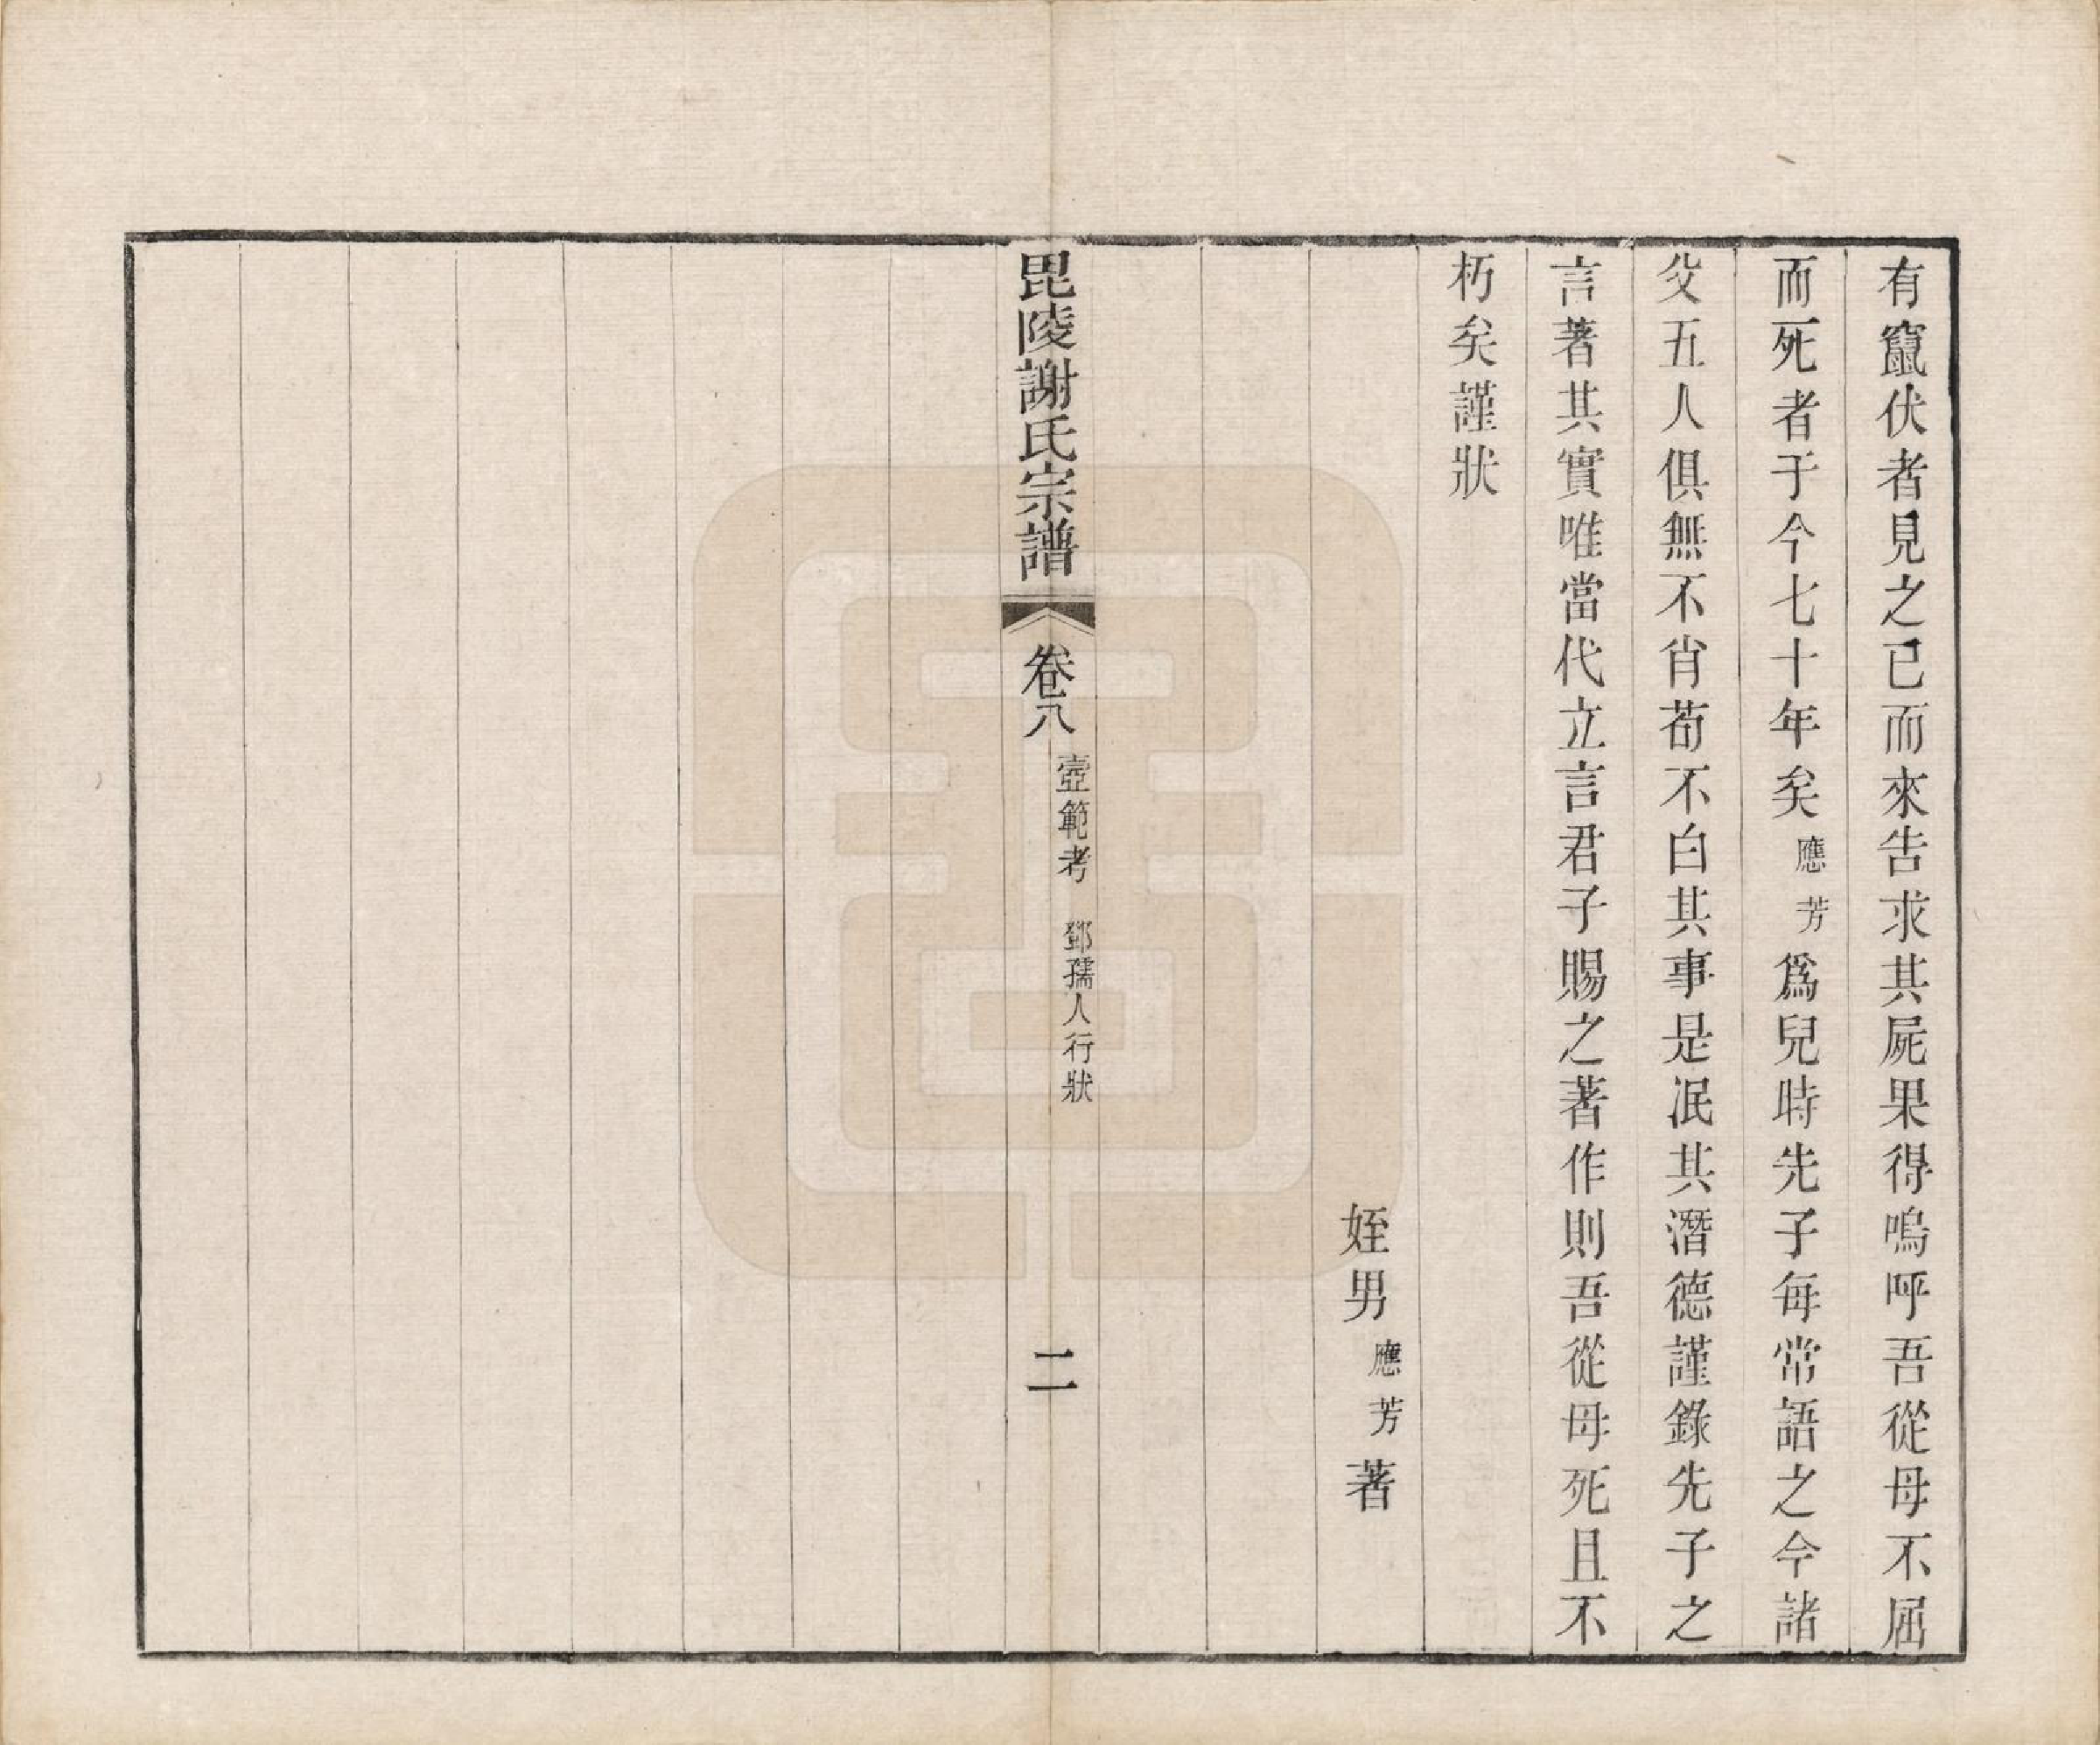 有竄伏者見之已而來告求其屍果得嗚呼吾從母不屈
而死者于今七十年矣應芳爲兒時先子每常語之今諸
父五人俱無不肖茍不白其事是泯其潛德謹錄先子之
言著其實唯當代立言君子賜之著作則吾從母死且不
朽矣謹狀
姪男應芳著
毘陵謝氏宗譜 卷八 壼範考 鄧孺人行狀 二